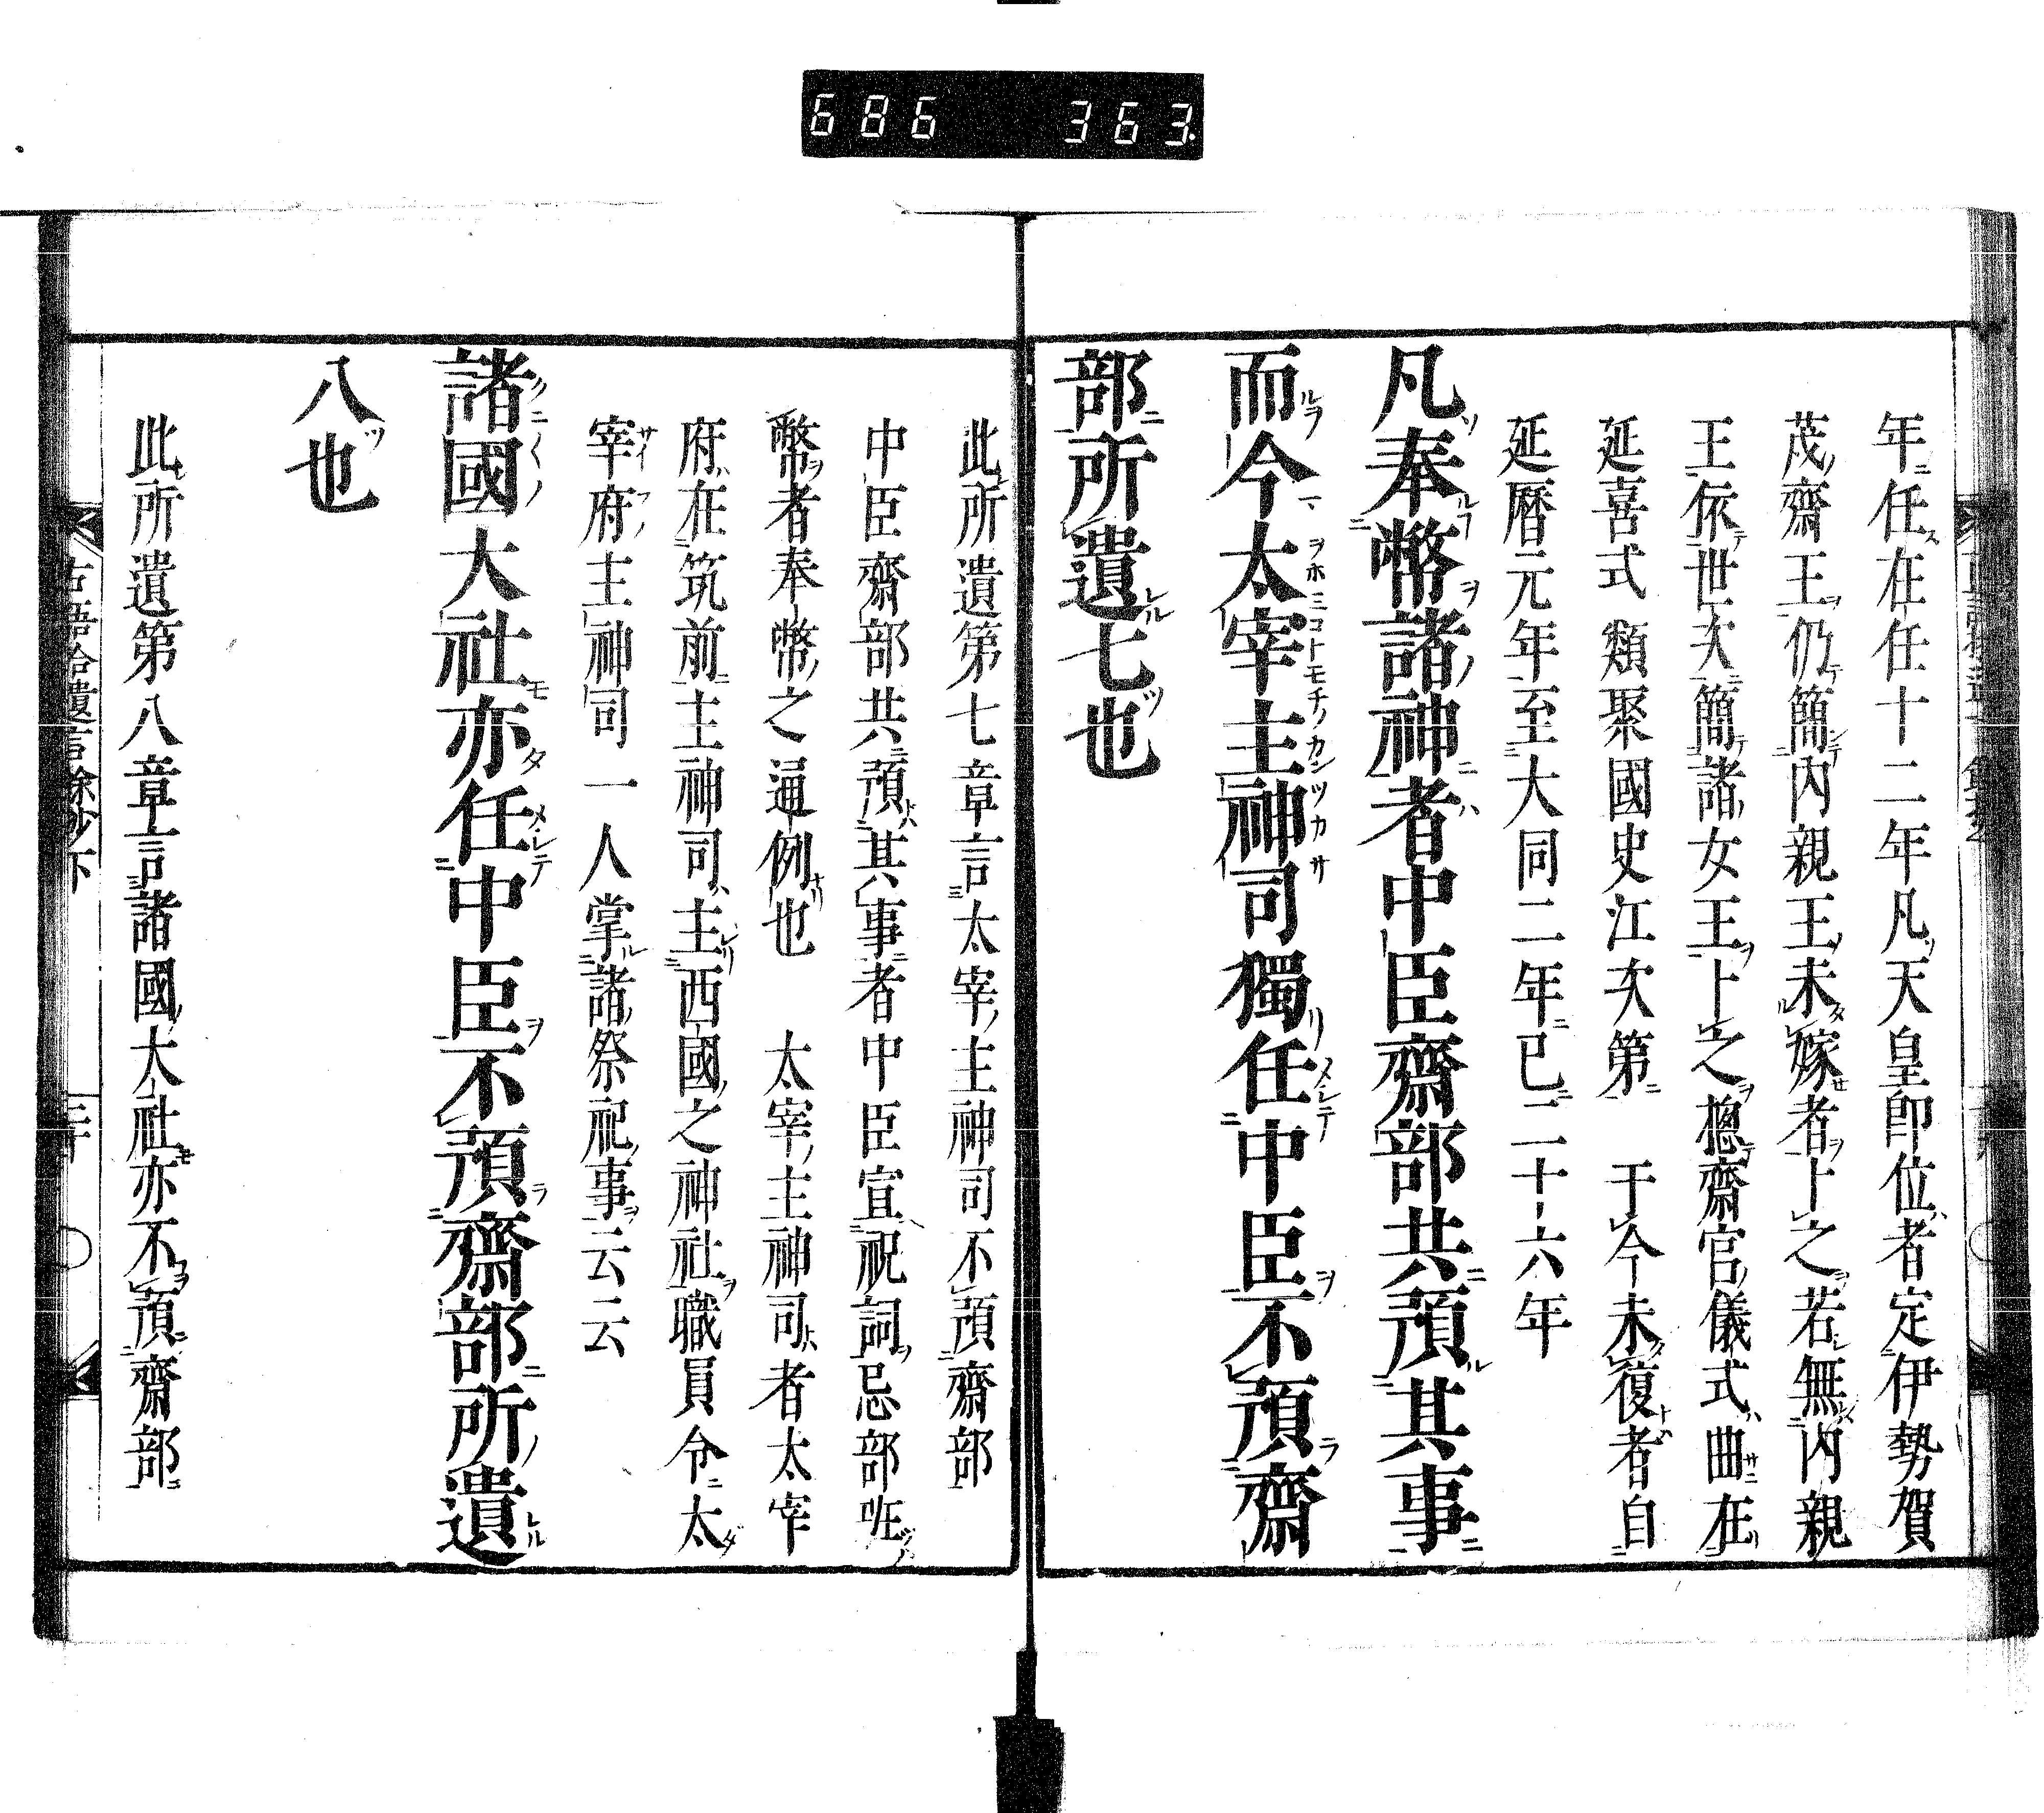 686 363
年任在任十二年凡天皇即位者定伊勢賀
茂齋王仍簡内親王未嫁者卜之若無内親
王依世次簡諸女王卜之揔齋宮儀式曲在
延喜式類聚國史江次第 于今未復者自
延曆元年至大同二年已二十六年
凡奉幣諸神者中臣齋部共預其事
而今太宰主神司獨任中臣不預齋
部所遺七也
此所遺第七章言太宰主神司不預齋部
中臣齋部共預其事者中臣宣祝詞忌部班
幣者奉幣之通例也 太宰主神司者太宰
府在筑前主神司主西國之神社職員令太
宰府主神司一人掌諸祭祀事云云
諸國大社亦任中臣不預齋部所遺
八也
此所遺第八章言諸國大社亦不預齋部
古語拾遺言餘抄下